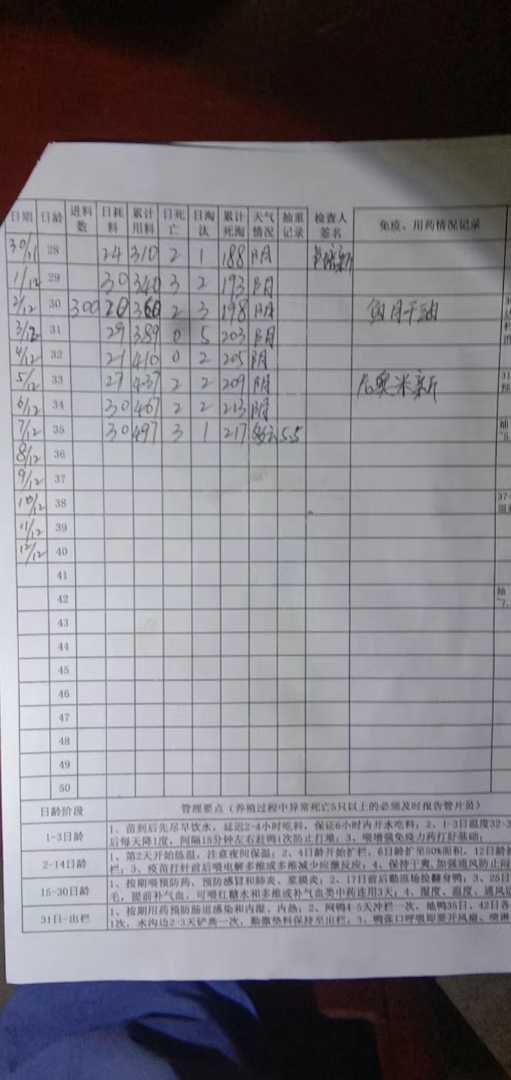 日期 日龄 进料数 日耗料 累计用料 日死亡 日淘汰 累计死淘 天气情况 抽重记录 检查人签名 免疫、用药情况记录
30/11 28 24 310 2 1 188 阴
1/12 29 30 340 3 2 193 阴
2/12 30 300 20 360 2 3 198 阴 鱼肝油
3/12 31 29 389 0 5 203 阴
4/12 32 21 410 0 2 205 阴
5/12 33 27 437 2 2 209 阴
6/12 34 30 467 2 2 213 阴
7/12 35 30 497 3 1 217 多云 5.5
8/12 36
9/12 37
10/12 38
11/12 39
12/12 40
41
42
43
44
45
46
47
48
49
50
日龄阶段 管理要点(养殖过程中异常死亡5只以上的必须及时报告管片员)
1-3日龄 1、苗到后先尽早饮水,延迟2-4小时吃料,保证6小时内开水吃料;2、1-3日温度32-3
后每天降1度,间隔15分钟左右赶鸭1次防止打堆;3、喂增强免疫力药打好基础;
2-14日龄 1、第2天开始练温,注意夜间保温;2、4日龄开始扩栏,6日龄扩至50%面积,12日龄
栏;3、疫苗打针前后喂电解多维或多维减少应激反应;4、保持干爽,加强通风防止
15-30日龄 1、按期喂预防药,预防感冒和肺炎、浆膜炎;2、17日前后勤巡场投翻身鸭;3、25日
毛,提前补气血,可喂红糖水和多维或补气血类中药连用3天;4、湿度、温度、通风
31日-出栏 1、按期用药预防肠道感染和内湿、内热;2、网鸭4-5天冲栏一次,地鸭35日、42日各
1次,水沟边2-3天铲粪一次,勤撒垫料保持至出栏;3、鸭张口呼吸即要开风扇、喷淋